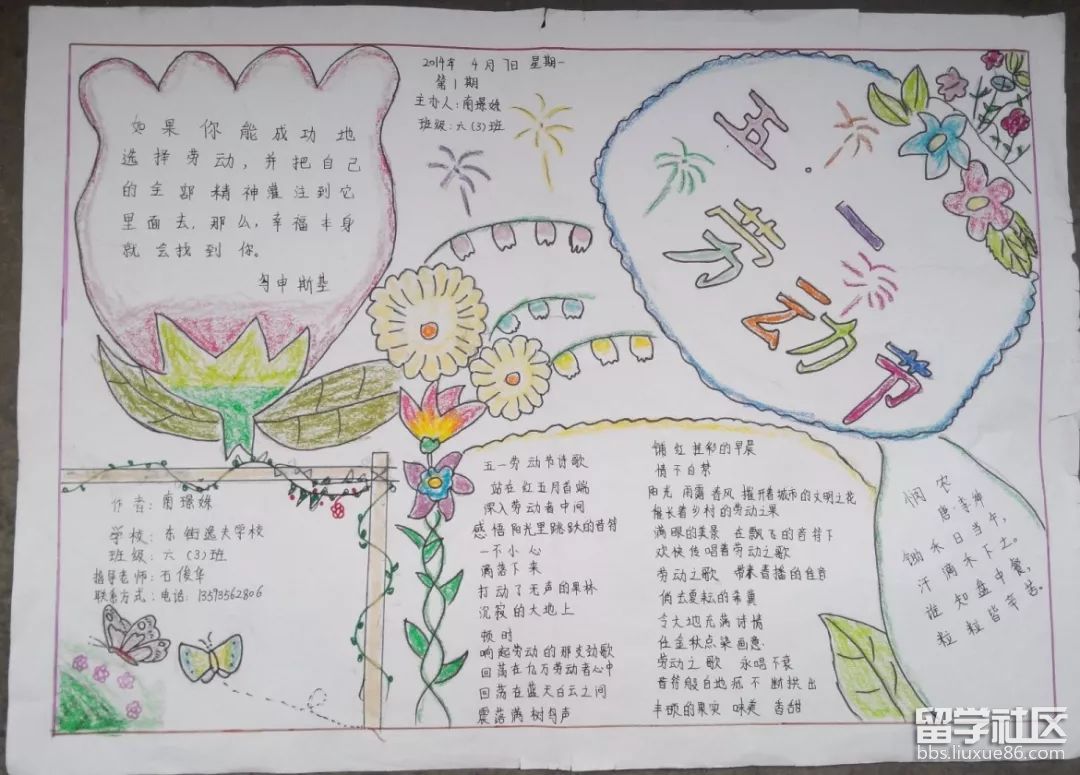 2014年 4月7日 星期一
第1期
主办人：南璟姝
班级：六(3)班
如果你能成功地
选择劳动，并把自己
的全部精神灌注到它
里面去，那么，幸福本身
就会找到你。
乌申斯基
五·一
劳动节
作者：南璟姝
学校：东街逸夫学校
班级：六(3)班
指导老师：石俊华
联系方式：电话：13593562806
五一劳动节诗歌
站在红五月首端
深入劳动者中间
感悟阳光里跳跃的音符
一不小心
滴落下来
打动了无声的果林
沉寂的大地上
顿时
响起劳动的那支劲歌
回荡在亿万劳动者心中
回荡在蓝天白云之间
震落满树鸟声
铺红挂彩的早晨
情不自禁
阳光 雨露 春风 擢开着城市的文明之花
擅长着乡村的劳动之果
满眼的美景 在飘飞的音符下
欢快传唱着劳动之歌
劳动之歌 带来春播的佳音
俏去夏耘的希冀
令大地充满诗情
任金秋点染画意
劳动之歌 永唱不衰
音符般自地孤不断拱出
丰硕的果实 味美 香甜
悯农
唐·李绅
锄禾日当午，
汗滴禾下土。
谁知盘中餐，
粒粒皆辛苦。
留学社区
bbs.liuxue86.com